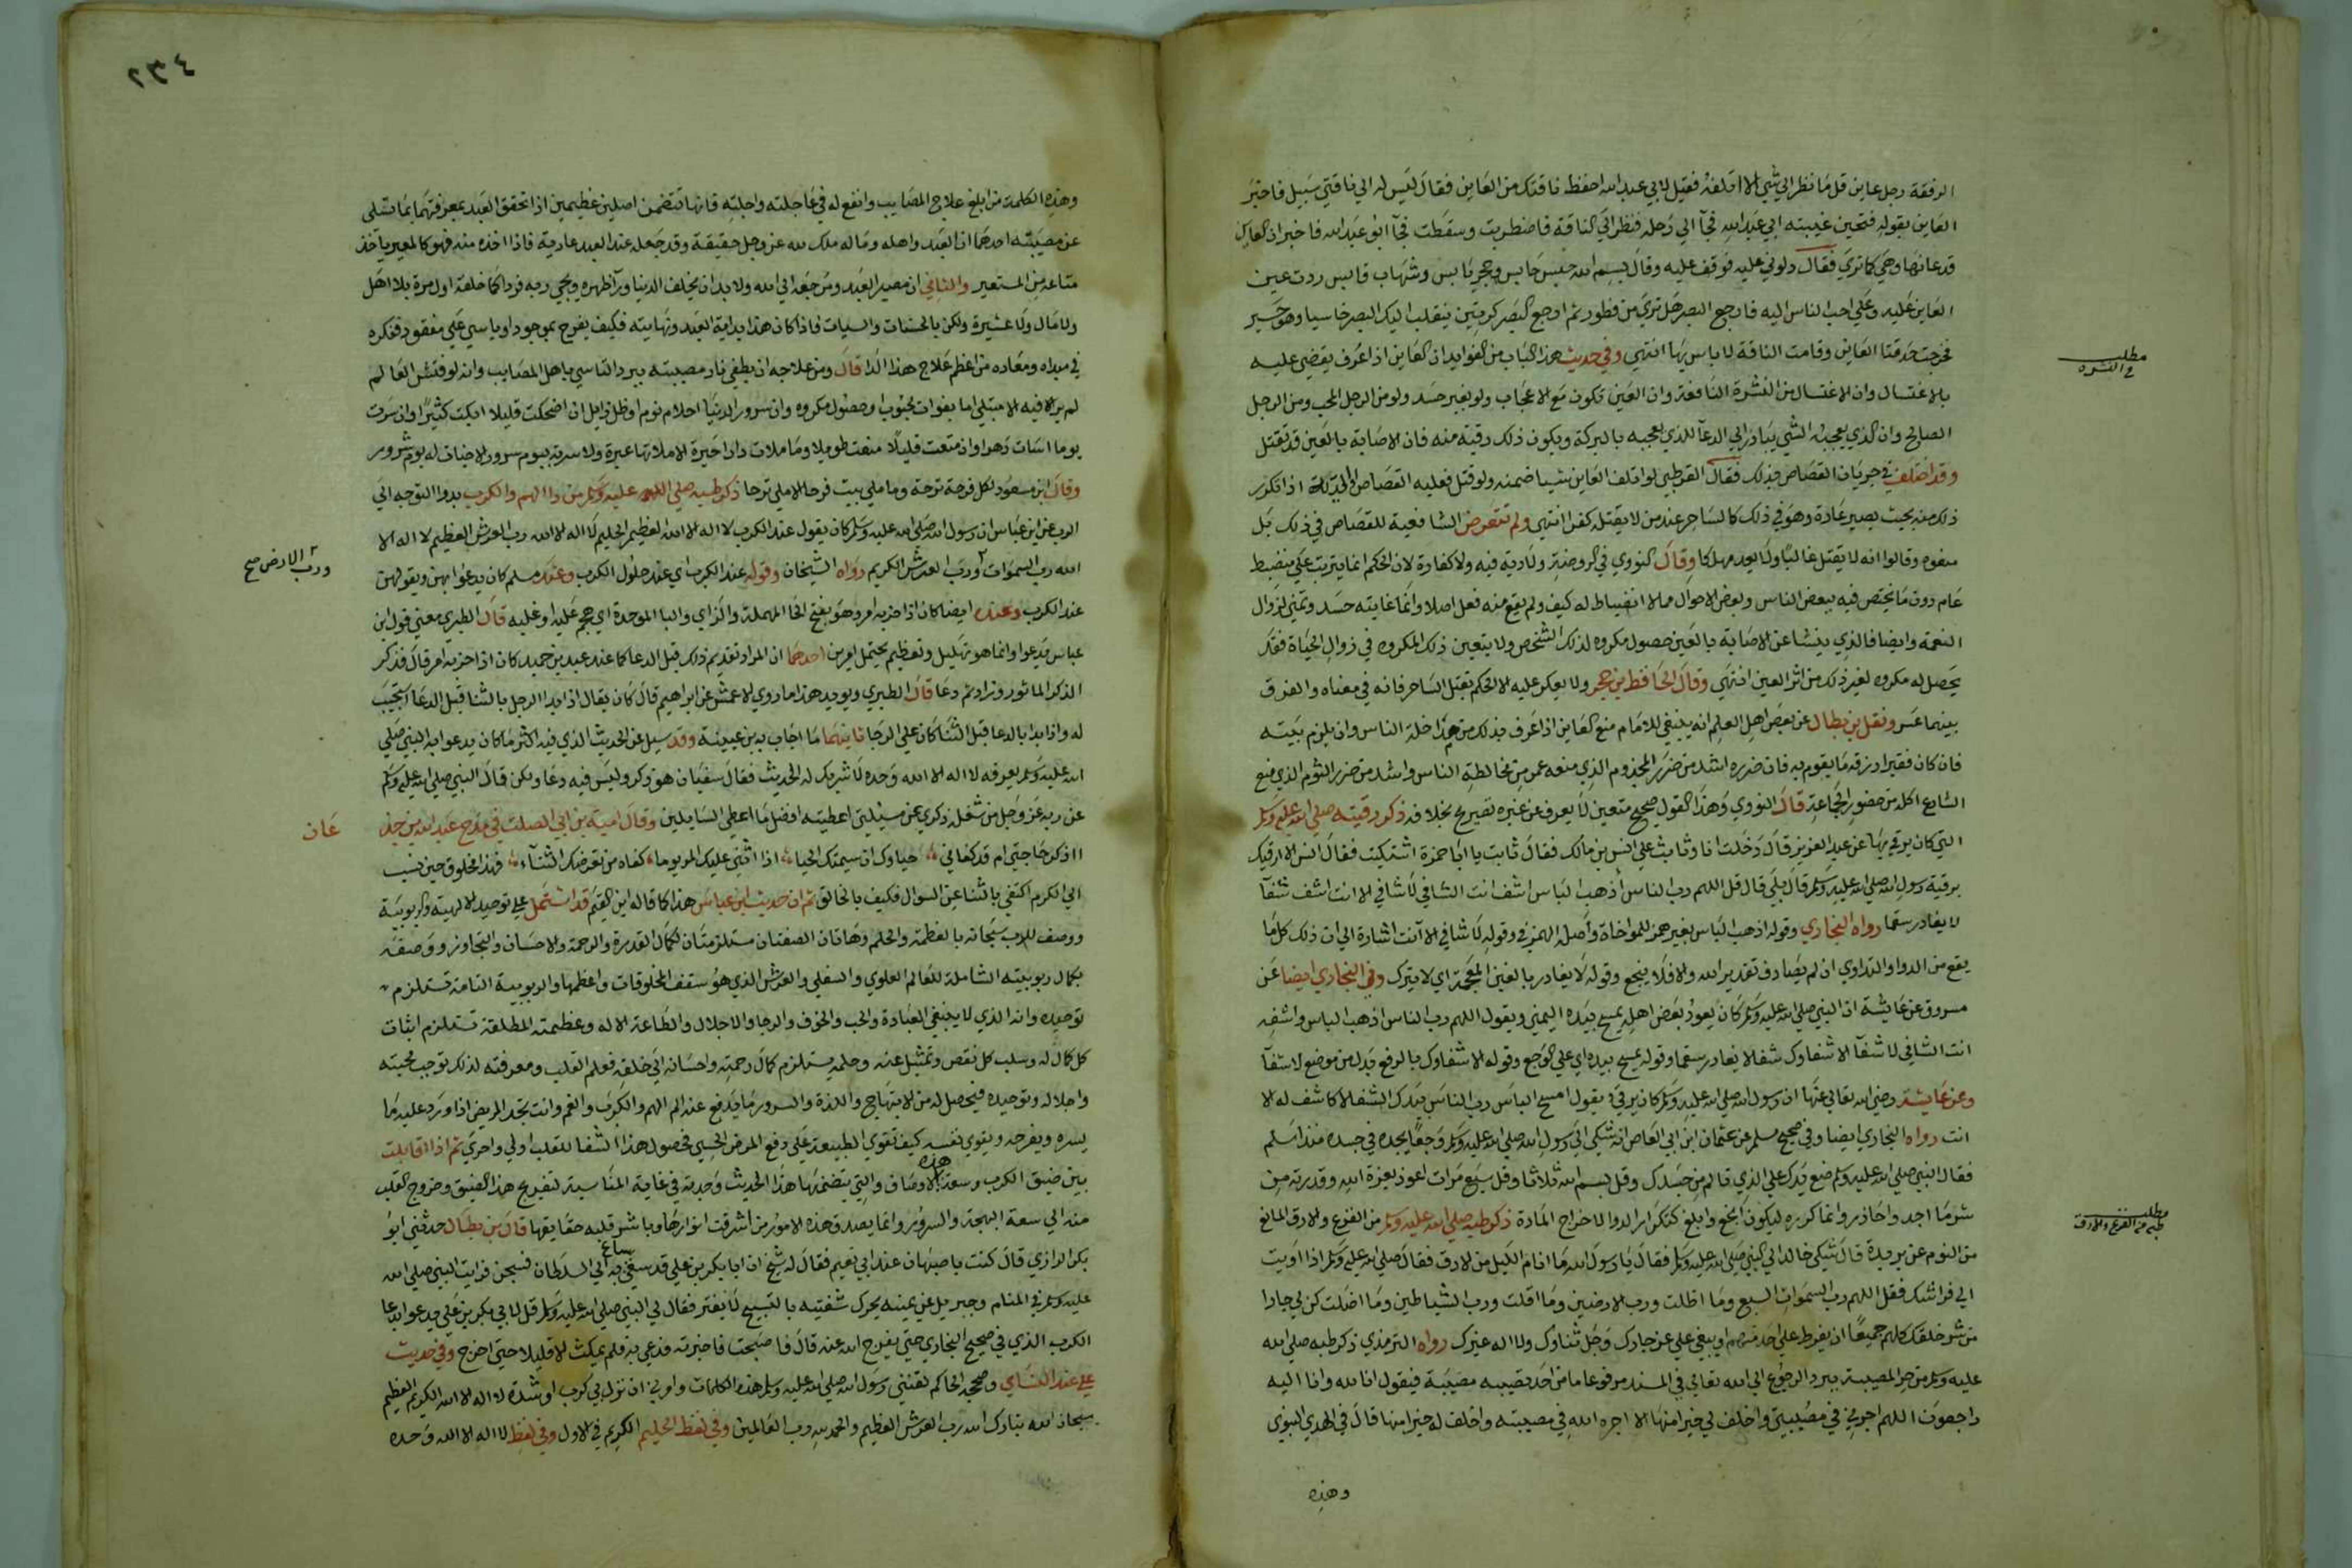 الرفقة رجل عاين قل ما نظر الي شي الا اتلفه فقيل لابي عبد الله احفظ ناقتك من العاين فقال ليس له الي ناقتي سبيل فاخبر
العاين بقوله فتحين غيبته ابي عبد الله فجآ الي رحله فنظر الي الناقة فاضطربت وسقطت فجآ ابو عبد الله فاخبر ان العاين
قد عانها وهي كما تري فقال دلوني عليه فوقف عليه وقال بسم الله حبس حابس وحجر يابس وشهاب قابس رددت عين
العاين عليه وعلي احب الناس اليه فارجع البصر هل تري من فطور ثم ارجع البصر كرتين ينقلب اليك البصر خاسيا وهو حسير
فخرجت حدقتا العاين وقامت الناقة لا باس بها انتهي وفي حديث هذا الباب من الفوايد ان العاين اذا عرف يقضي عليه
مطلب
في النشره
بالاغتسال وان الاغتسال من النشرة النافعة وان العين تكون مع الاعجاب ولو بغير حسد ولو من الرجل المحب ومن الرجل
الصالح وان الذي يعجبه الشي يبادر الي الدعآ للذي يعجبه بالبركة ويكون ذلك رقية منه فان الاصابة بالعين قد تقتل
وقد اختلف في جريان القصاص بذلك فقال القرطبي لو اتلف العاين شيا ضمنه ولو قتل فعليه القصاص او الدية اذا تكرر
ذلك منه بحيث يصير عادة وهو في ذلك كالساحر عند من لا يقتله كفرا انتهي ولم تتعرض الشافعية للقصاص في ذلك بل
منعوه وقالوا انه لا يقتل غالبا ولا يعد مهلكا وقال النووي في الروضة ولا دية فيه ولا كفارة لان الحكم انما يترتب علي منضبط
عام دون ما يختص فيه ببعض الناس وبعض الاحوال مما لا انضباط له كيف ولم يقع منه فعل اصلا وانما غايته حسد وتمني لزوال
النعمة وايضا فالذي ينشا عن الاصابة بالعين حصول مكروه لذلك الشخص ولا يتعين ذلك المكروه في زوال الحياة فقد
يحصل له مكروه لغير ذلك من اثر العين انتهي وقال الحافظ بن حجر ولا يعكر عليه الا الحكم بقتل الساحر فانه في معناه والفرق
بينهما عسر ونقل بن بطال عن بعض اهل العلم انه ينبغي للامام منع العاين اذا عرف بذلك من مداخلة الناس وان يلزم بيته
فان كان فقيرا رزقه ما يقوم به فان ضرره اشد من ضرر المجذوم الذي منعه عمر من مخالطة الناس واشد من ضرر الثوم الذي منع
الشارع اكله من حضور الجماعة قال النووي وهذا القول صحيح متعين لا يعرف عن غيره تصريح بخلافه ذكر رقيته صلي الله عليه وسلم
التي كان يرقي بها عن عبد العزيز قال دخلت انا وثابت علي انس بن مالك فقال ثابت يا ابا حمزة اشتكيت فقال انس الا ارقيك
برقية رسول الله صلي الله عليه وسلم قال بلي قال قل اللهم رب الناس أذهب الباس اشف انت الشافي لا شافي الا انت اشف شفآ
لا يغادر سقما رواه البخاري وقوله اذهب الباس بغير همز للمواخاة وأصله الهمز وفي قوله لا شافي الا أنت اشارة الي ان ذلك كل ما
يقع من الدوا والتداوي ان لم يصادف تقدير الله والا فلا ينجع وقوله لا يغادر بالغين المعجمة اي لا يترك وفي البخاري ايضا عن
مسروق عن عايشة ان النبي صلي الله عليه وسلم كان يعود بعض اهله يمسح بيده اليمني ويقول اللهم رب الناس اذهب الباس واشفه
انت الشافي لا شفآ الا شفاوك شفا لا يغادر سقما وقوله يمسح بيده اي علي الوجع وقوله الا شفاوك بالرفع بدل من موضع لا شفآ
وعن عايشة رضي الله تعالي عنها ان رسول الله صلي الله عليه وسلم كان يرقي ويقول امسح الباس رب الناس بيدك الشفا لا كاشف له الا
انت رواه البخاري ايضا وفي صحيح مسلم عن عثمان ابن ابي العاص انه شكي الي رسول الله صلي الله عليه وسلم وجعا يجده في جسده منذ اسلم
فقال النبي صلي الله عليه وسلم ضع يدك علي الذي تالم من جسدك وقل بسم الله ثلاثا وقل سبع مرات اعوذ بعزة الله وقدرته من
شر ما اجد واحاذر وانما كرره ليكون انجع وابلغ كتكرار الدوا لاخراج المادة ذكر طبه صلي الله عليه وسلم من الفزع والارق المانع
مطلب
طبه من الفزع والارق
من النوم عن بريدة قال شكي خالد الي النبي صلي الله عليه وسلم فقال يا رسول الله ما انام الليل من الارق فقال صلي الله عليه وسلم اذا اويت
الي فراشك فقل اللهم رب السموات السبع وما اظلت ورب الارضين وما اقلت ورب الشياطين وما اضلت كن لي جارا
من شر خلقك كلهم جميعا ان يفرط علي احد منهم او يبغي علي عز جارك وجل ثناوك ولا اله غيرك رواه الترمذي ذكر طبه صلي الله
عليه وسلم من حر المصيبة ببرد الرجوع الي الله تعالي في المسند مرفوعا ما من احد تصيبه مصيبة فيقول انا لله وانا اليه
راجعون اللهم اجرني في مصيبتي واخلف لي خيرا منها الا اجره الله في مصيبته واخلف له خيرا منها قال في الهدي النبوي
وهذه
٢٣٤
وهذه الكلمة من ابلغ علاج المصايب وانفع له في عاجلته واجلته فانها تتضمن اصلين عظيمين اذا تحقق العبد بمعرفتهما بما تسلي
عن مصيبته احدهما ان العبد واهله وماله ملك لله عز وجل حقيقة وقد جعله عند العبد عارية فاذا اخذه منه فهو كالمعير ياخذ
متاعه من المستعير والثاني ان مصير العبد ومرجعه الي الله ولا بد ان يخلف الدنيا ورآ ظهره ويجي ربه فردا كما خلقه اول مرة بلا اهل
ولا مال ولا عشيرة ولكن بالحسنات والسيات فاذا كان هذا بداية العبد ونهايته فكيف يفرح بموجود او ياسي علي مفقود ففكره
في مبداه ومعاده من اعظم علاج هذا الدا قال ومن علاجه ان يطفي نار مصيبته ببرد التاسي باهل المصايب وانه لو فتش العالم
لم ير الا فيه الا مبتلي اما بفوات محبوب او حصول مكروه وان سرور الدنيا احلام نوم او ظل زايل ان اضحكت قليلا ابكت كثيرا وان سرت
يوما اسات دهرا وان متعت قليلا منعت طويلا وما ملات دارا حيرة الا ملاتها عبرة ولا سرته بيوم سرور الا خبات له يوم شرور
وقال ابن مسعود لكل فرحة ترحة وما ملي بيت فرحا الا ملي ترحا ذكر طبه صلي الله عليه وسلم من دا الهم والكرب بدوا التوجه الي
الرب عن ابن عباس ان رسول الله صلي الله عليه وسلم كان يقول عند الكرب لا اله الا الله العظيم الحليم لا اله الا الله رب العرش العظيم لا اله الا
الله رب السموات ورب العرش الكريم رواه الشيخان وقوله عند الكرب اي عند حلول الكرب وعند مسلم كان يدعوا بهن ويقولهن
ورب الارض صح
عند الكرب وعنده ايضا كان اذا حزبه امر وهو بفتح الحا المهملة والزاي والبا الموحدة اي هجم عليه او غلبه قال الطبري معني قول ابن
عباس يدعوا وانما هو تهليل وتعظيم يحتمل امرين احدهما ان المراد تقديم ذلك قبل الدعا كما عند عبد بن حميد كان اذا حزبه امر قال فذكر
الذكر الماثور وزاد ثم دعا قال الطبري ويويد هذا ما روي الاعمش عن ابراهيم قال كان يقال اذا بدا الرجل بالثنا قبل الدعا استجيب
له واذا بدا بالدعا قبل الثنا كان علي الرجا ثانيهما ما اجاب به بن عيينة وقد سيل عن الحديث الذي فيه اكثر ما كان يدعوا به النبي صلي
الله عليه وسلم بعرفه لا اله الا الله وحده لا شريك له الحديث فقال سفيان هو ذكر وليس فيه دعا ولكن قال النبي صلي الله عليه وسلم
عن ربه عز وجل من شغله ذكري عن مسئلتي اعطيته افضل ما اعطي السايلين وقال امية بن ابي الصلت في مدح عبد الله بن جذ
عان
ااذكر حاجتي ام قد كفاني حياوك ان سيمتك الحيا اذا اثني عليك المر يوما كفاه من تعرضك الثنآء فهذا مخلوق حين نسب
الي الكرم اكتفي بالثنا عن السوال فكيف بالخالق ثم ان حديث ابن عباس هذا كما قاله ابن القيم قد اشتمل علي توحيد الالهية والربوبية
ووصف للرب سبحانه بالعظمة والحلم وهاتان الصفتان مستلزمتان لكمال القدرة والرحمة والاحسان والتجاوز ووصفه
بكمال ربوبيته الشاملة للعالم العلوي والسفلي والعرش الذي هو سقف المخلوقات واعظمها والربوبية التامة تستلزم
توحيده وانه الذي لا ينبغي العبادة والحب والخوف والرجا والاجلال والطاعة الا له وعظمته المطلقة تستلزم اثبات
كل كمال له وسلب كل نقص وتمثيل عنه وحلمه يستلزم كمال رحمته واحسانه الي خلقه فعلم القلب ومعرفته لذلك توجب محبته
واجلاله وتوحيده فيحصل له من الابتهاج واللذة والسرور ما يدفع عنه الم الهم والكرب والغم وانت تجد المريض اذا ورد عليه ما
يسره ويفرحه ويقوي نفسه كيف تقوي الطبيعة علي دفع المرض الحسي فحصول هذا الشفا للقلب اولي واحري ثم اذا قابلت
بين ضيق الكرب وسعة هذه الاوصاف والتي يتضمنها هذا الحديث وجدته في غاية المناسبة لتفريج هذا الضيق وخروج القلب
منه الي سعة البهجة والسرور وانما يصدق هذه الامور من اشرقت انوارها وباشر قلبه حقايقها قال بن بطال حدثني ابو
بكر الرازي قال كنت باصبهان عند ابي نعيم فقال له شيخ ان ابا بكر بن علي قد سعي به الي السلطان فسجن فرايت النبي صلي الله
عليه وسلم في المنام وجبريل عن يمينه يحرك شفتيه بالتسبيح لا يفتر فقال لي النبي صلي الله عليه وسلم قل لابي بكر بن علي يدعوا بدعا
الكرب الذي في صحيح البخاري حتي يفرج الله عنه قال فاصبحت فاخبرته فدعي به فلم يمكث الا قليلا حتي اخرج وفي حديث
علي عند النساي وصححه الحاكم لقنني رسول الله صلي الله عليه وسلم هذه الكلمات وامرني ان نزل بي كرب او شدة لا اله الا الله الكريم العظيم
سبحان الله تبارك الله رب العرش العظيم والحمد لله رب العالمين وفي لفظ الحليم الكريم في الاول وفي لفظ لا اله الا الله وحده